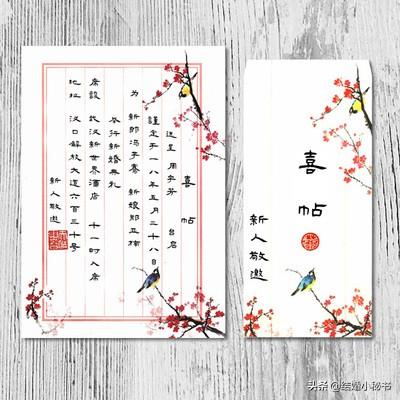 喜帖
送呈 周宇芳 台启
謹定于一八年五月二十八日
为 新郎冯子 新娘郎亚楠
举行新婚典礼
席設 武汉新世界酒店 十一时入席
地址 汉口解放大道六百三十号
新人敬邀
喜帖
新人敬邀
头条 @结婚小秘书